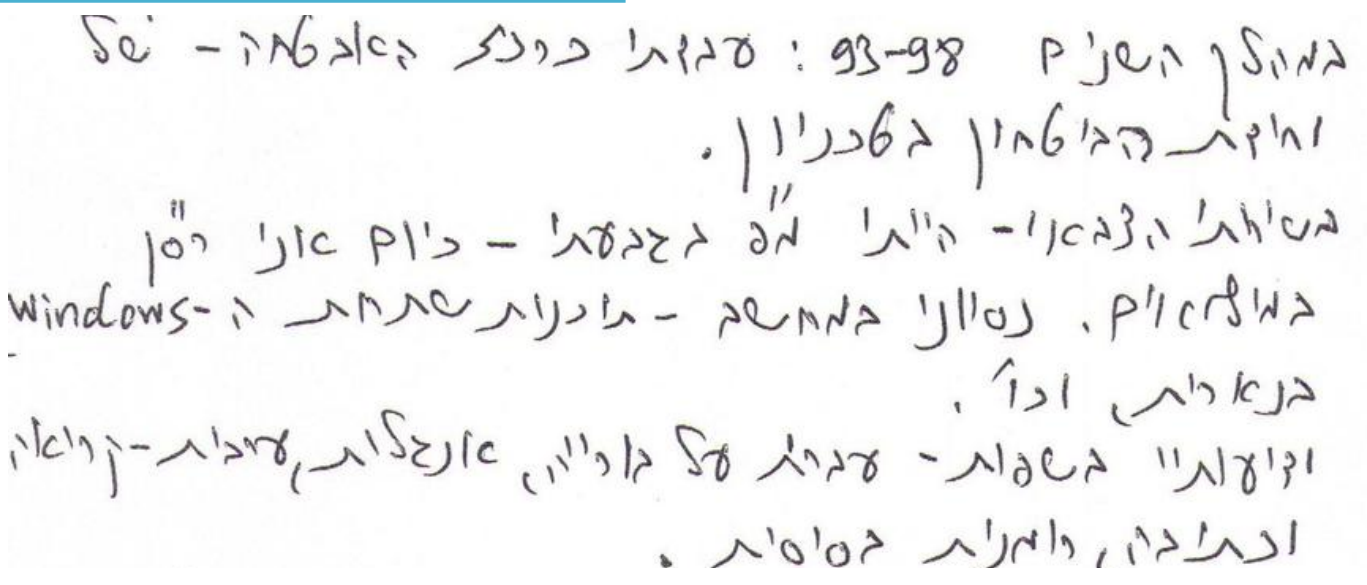 במהלך השנים 93-98: עבדתי כרכז האבטחה - של
יחידת הביטחון בטכניון.
בשירותי הצבאי - הייתי מ"פ בגבעתי - כיום אני רס"ן
במילואים. נסיוני במחשב - תוכנות שתחת ה-Windows
וכו'.
וידיעותיי בשפות - עברית על בוריה, אנגלית, ערבית - קריאה
וכתיבה, רומנית בסיסית.